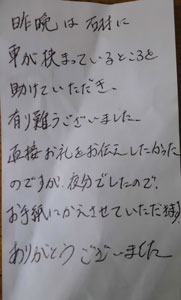 昨晩は石材に
車が挟まっているところを
助けていただき、
有り難うございました。
直接お礼をお伝えしたかった
のですが、夜分でしたので、
お手紙にかえさせていただきます。
ありがとうございました